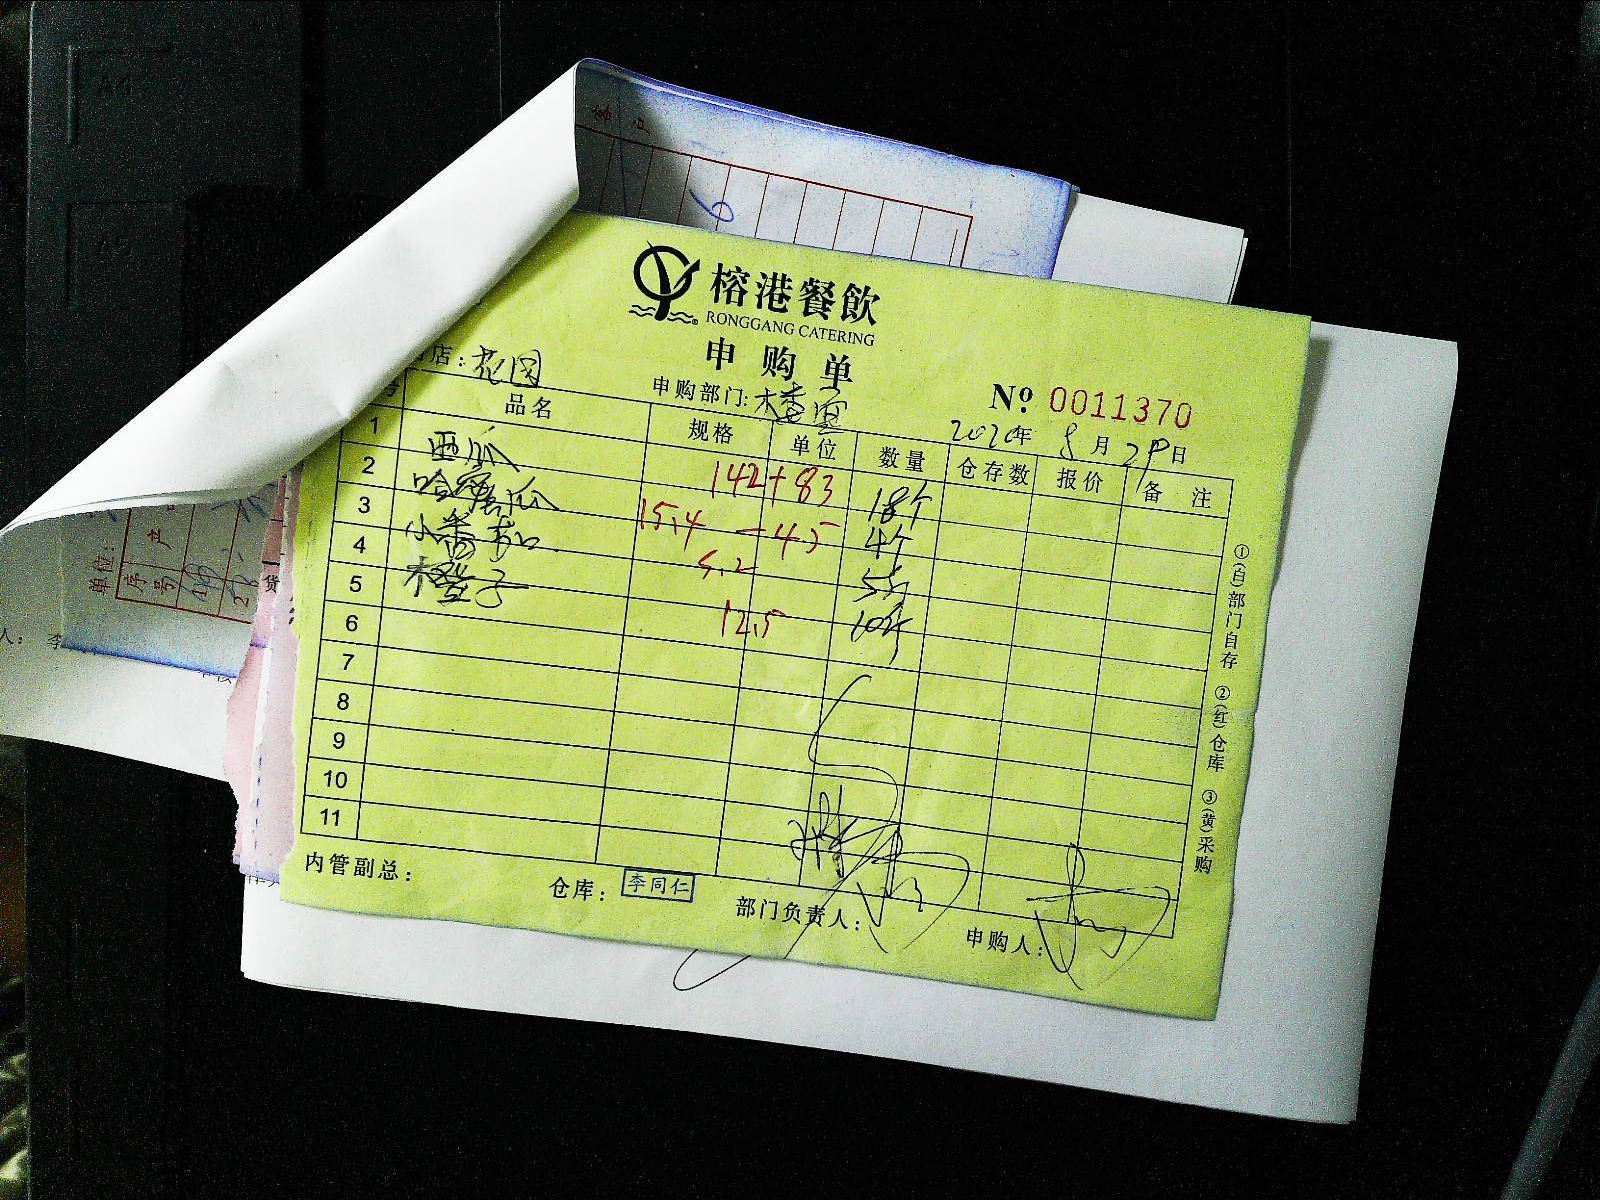 客户
6
榕港餐飲
RONGGANG CATERING
申购单
店：花园
申购部门：楼面
№ 0011370
2020年 8月29日
号 品名 规格 单位 数量 仓存数 报价 备注
1 西瓜 142+83 18个
2 哈蜜瓜 15.4 -4.5 4个
3 小番茄 5.2 5斤
4 橙子 12.5 10斤
5
6
7
8
9
10
11
①(白)部门自存 ②(红)仓库 ③(黄)采购
内管副总：
仓库：李同仁
部门负责人：
申购人：
单位：
序号
货
人： 李
A4
A5